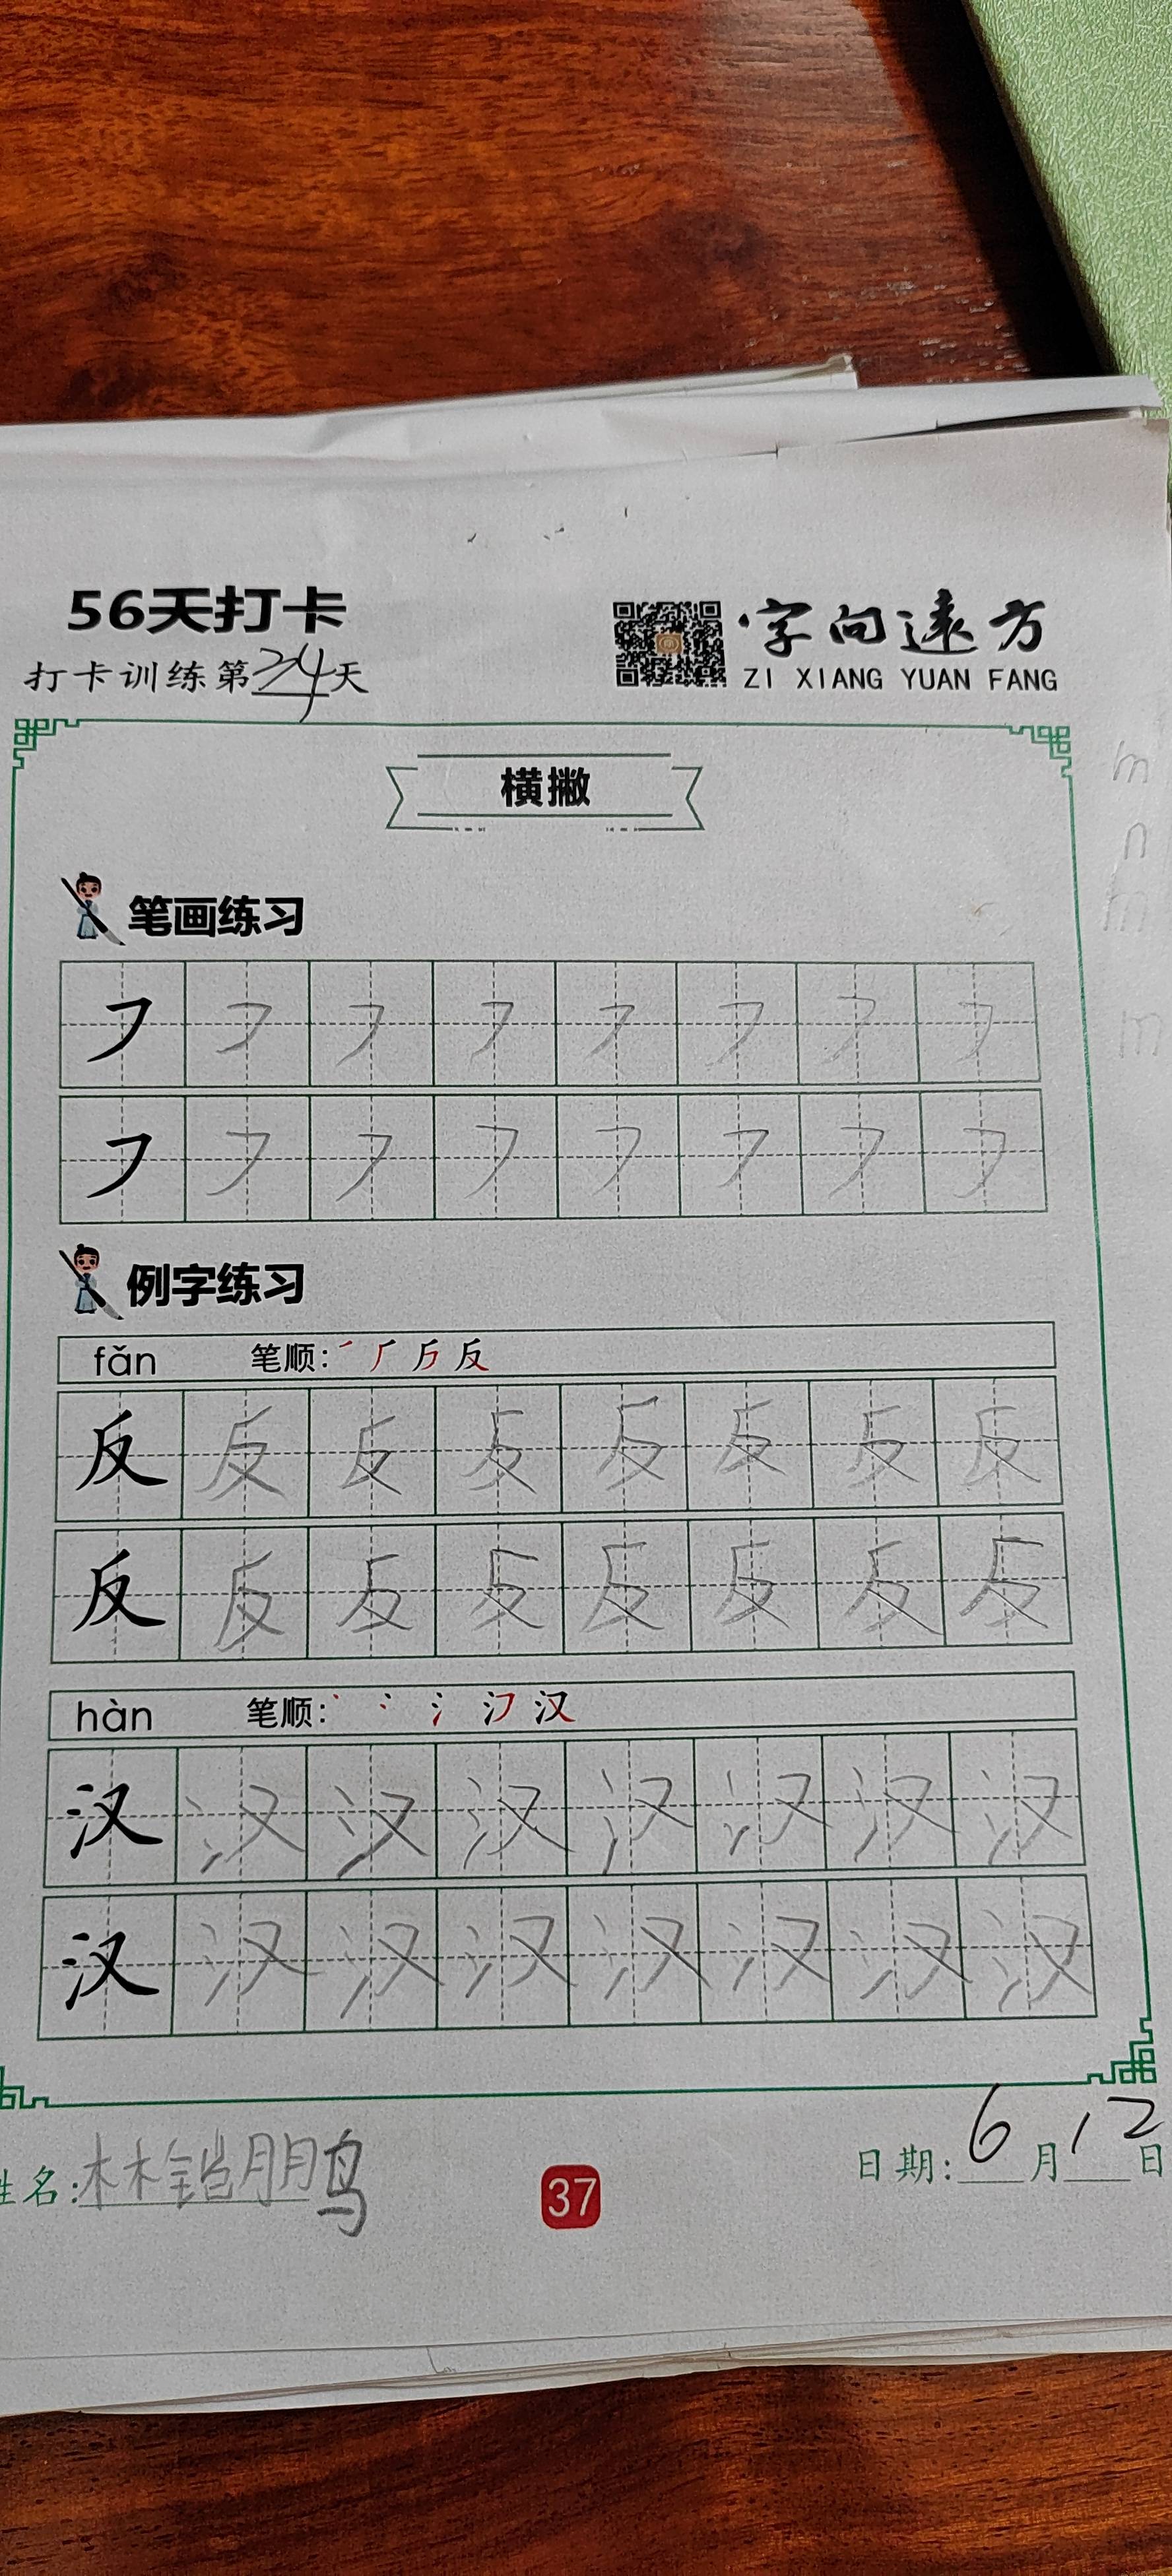 56天打卡
打卡训练第24天
字向远方
ZI XIANG YUAN FANG
横撇
笔画练习
例字练习
fǎn 笔顺: 反
反 反 反 反 反 反 反 反
反 反 反 反 反 反 反 反
hàn 笔顺: 汉
汉 汉 汉 汉 汉 汉 汉 汉
汉 汉 汉 汉 汉 汉 汉 汉
姓名: 林铠鹏
37
日期: 6月12日
m
n
m
m